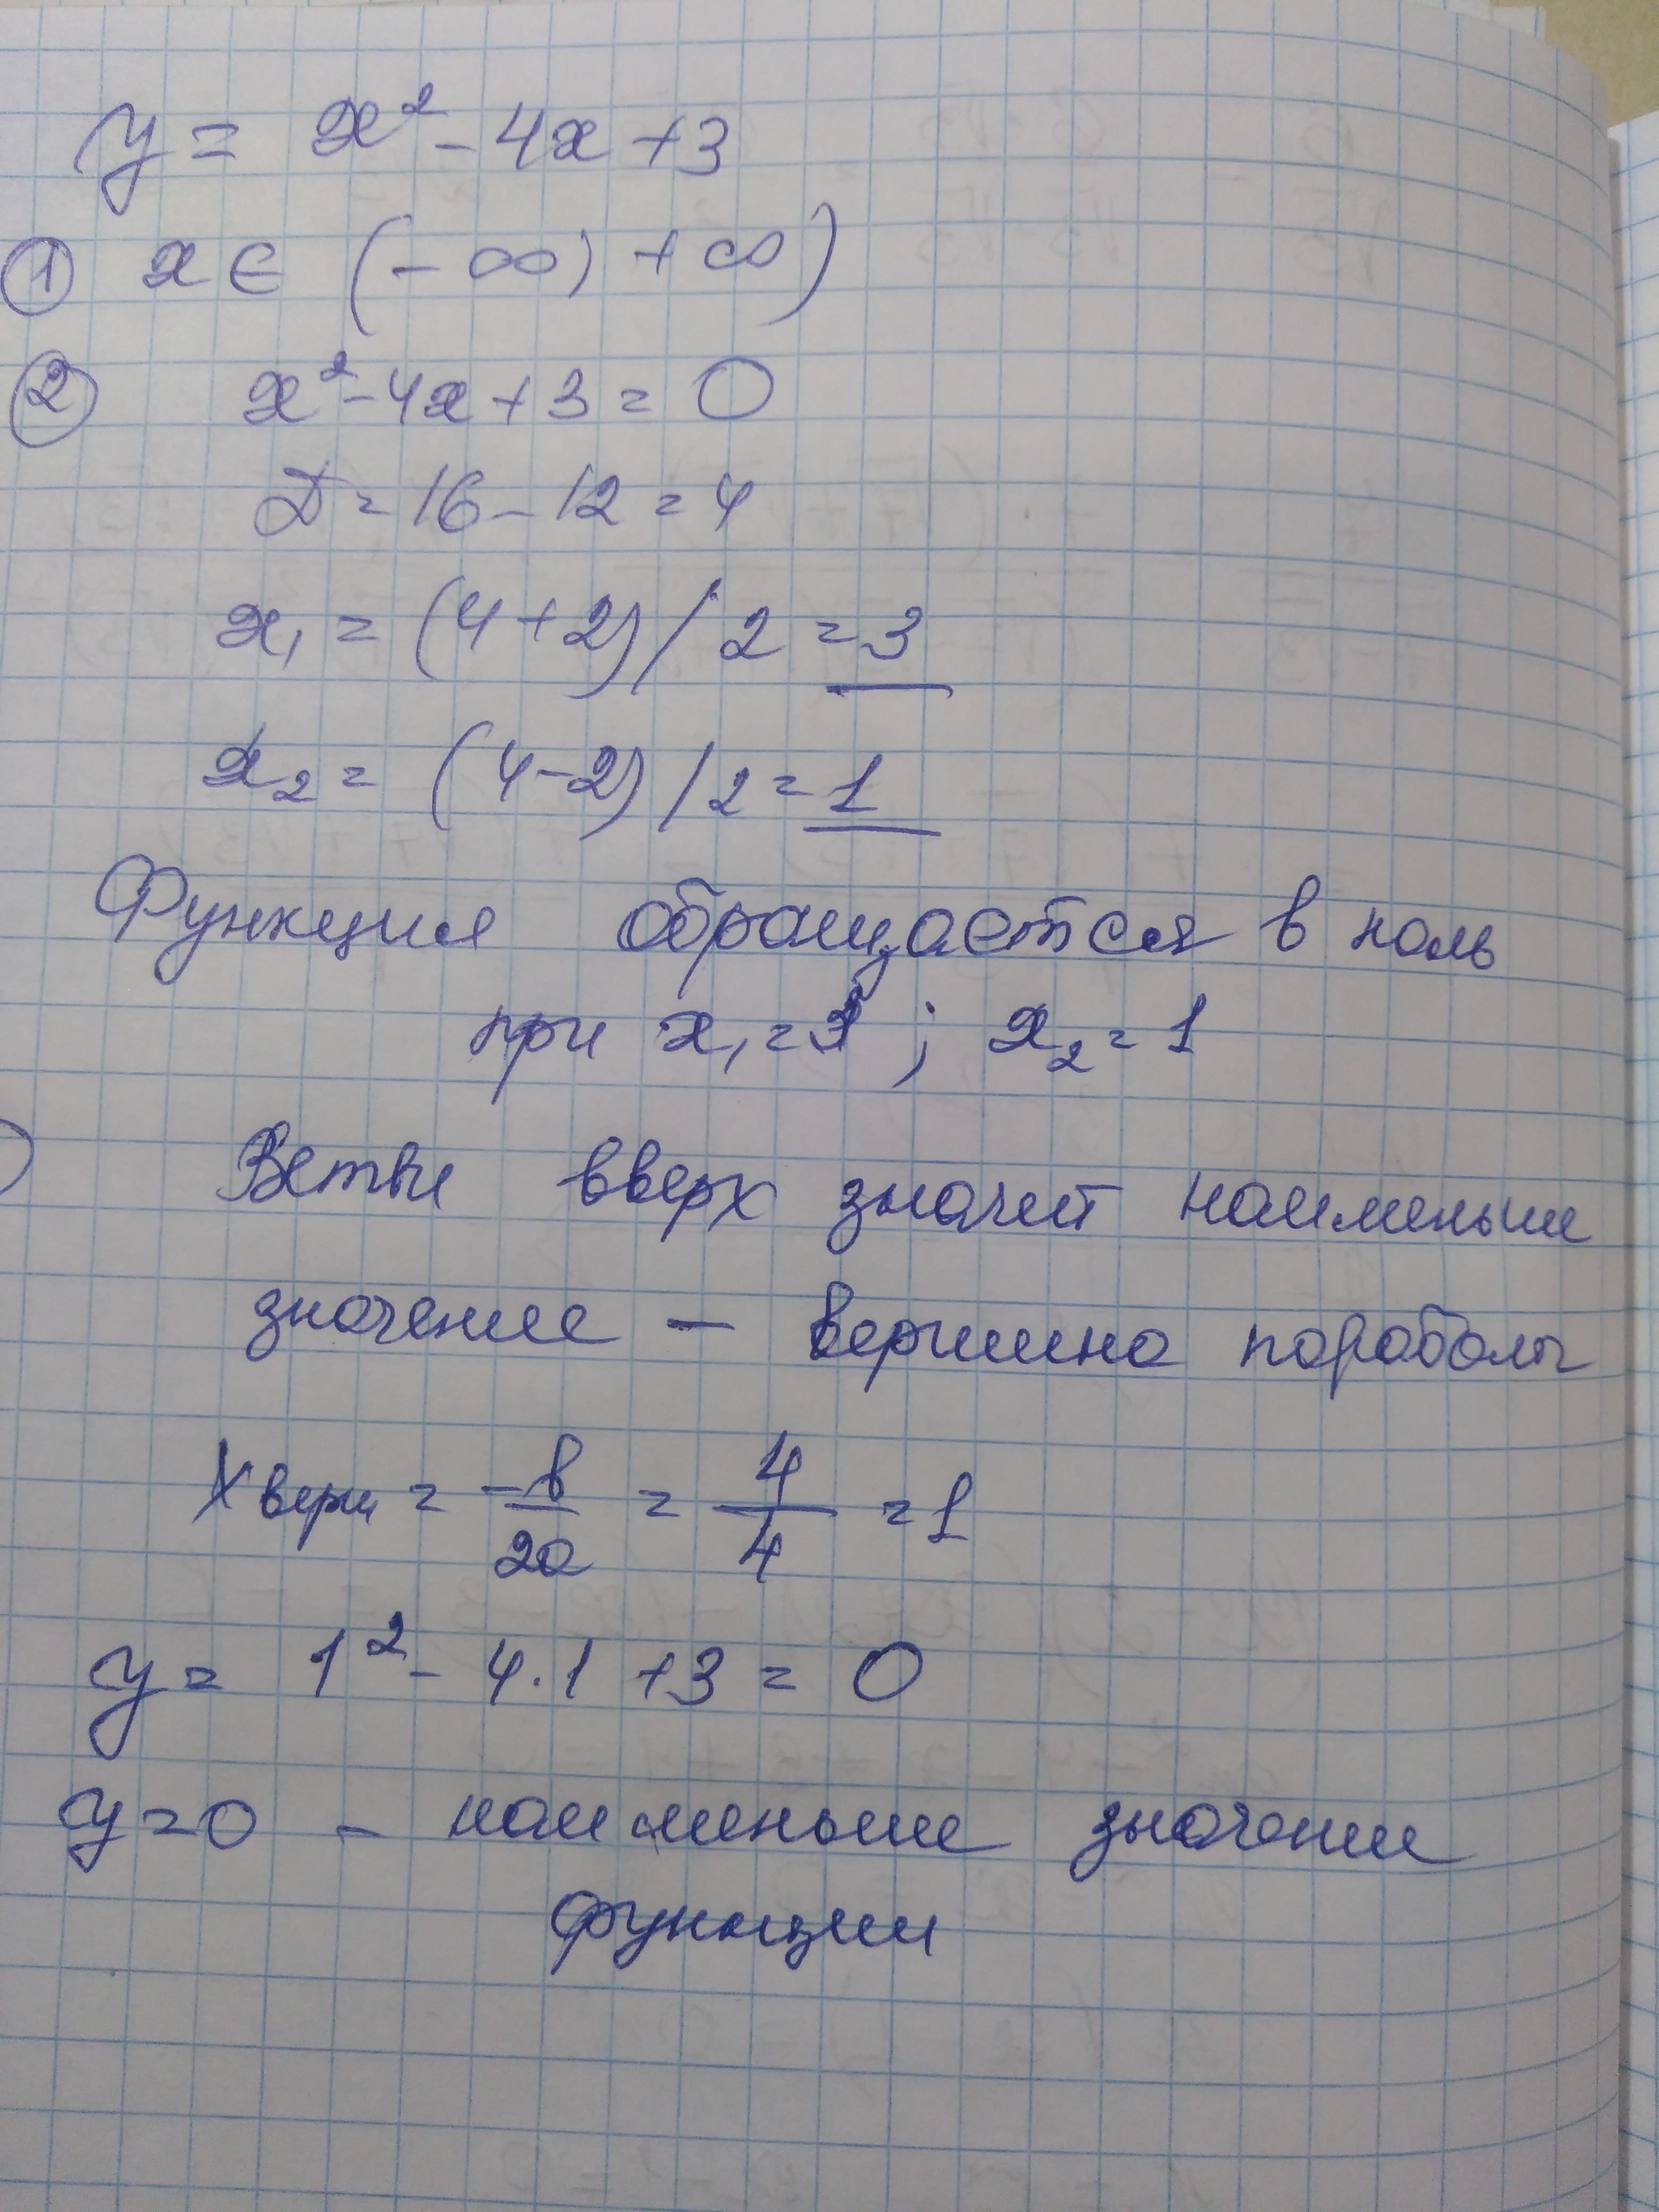 y = x² - 4x + 3
① x ∈ (-∞; +∞)
② x² - 4x + 3 = 0
D = 16 - 12 = 4
x₁ = (4 + 2) / 2 = 3
x₂ = (4 - 2) / 2 = 1
Функция обращается в ноль
при x₁ = 3 ; x₂ = 1
Ветви вверх значит наименьше
значение — вершина параболы
Xверш = -b/2a = 4/4 = 1
y = 1² - 4·1 + 3 = 0
y = 0 - наименьше значение
функции